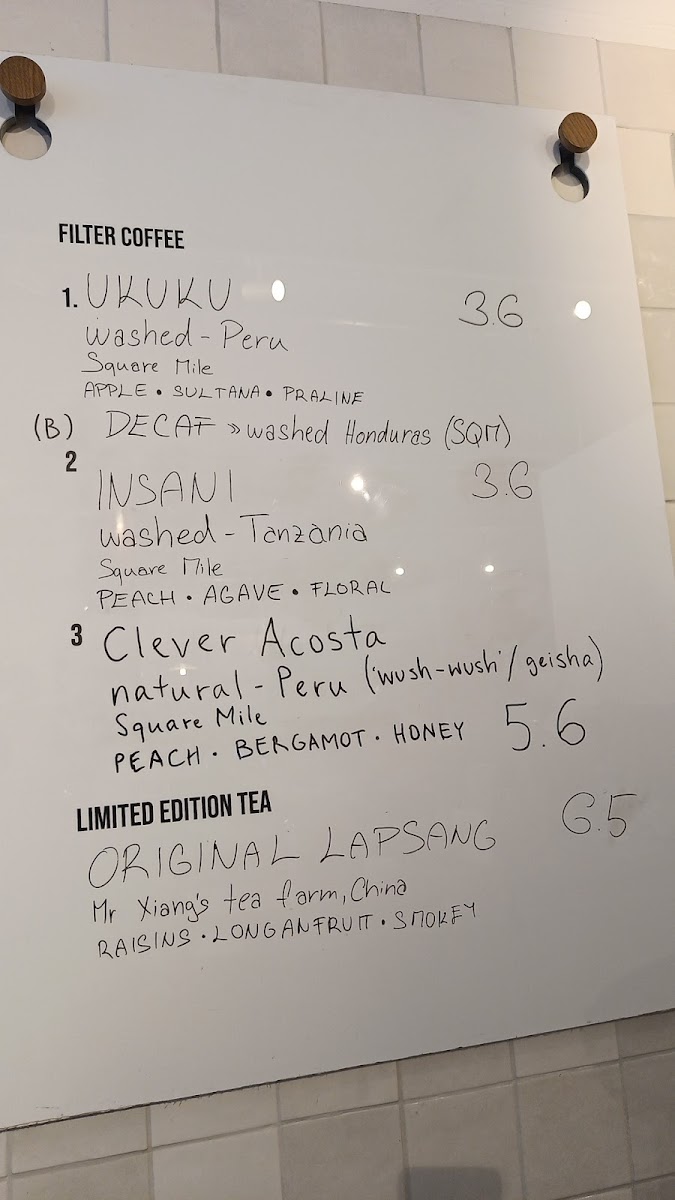 FILTER COFFEE
1. UKUKU 3.6
washed - Peru
Square Mile
APPLE • SULTANA • PRALINE
(B) DECAF » washed Honduras (SQM)
2 INSANI 3.6
washed - Tanzania
Square Mile
PEACH • AGAVE • FLORAL
3 Clever Acosta
natural - Peru ('wush-wush' / geisha)
Square Mile
PEACH • BERGAMOT • HONEY 5.6
LIMITED EDITION TEA
ORIGINAL LAPSANG 6.5
Mr Xiang's tea farm, China
RAISINS • LONGANFRUIT • SMOKEY